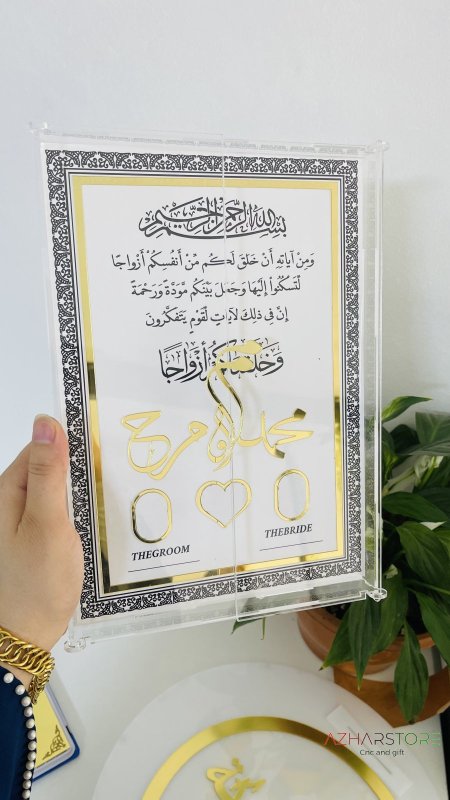 بسم الله الرحمن الرحيم
وَمِنْ آيَاتِهِ أَنْ خَلَقَ لَكُم مِّنْ أَنفُسِكُمْ أَزْوَاجًا
لِّتَسْكُنُوا إِلَيْهَا وَجَعَلَ بَيْنَكُم مَّوَدَّةً وَرَحْمَةً
إِنَّ فِي ذَٰلِكَ لَآيَاتٍ لِّقَوْمٍ يَتَفَكَّرُونَ
وَخَلَقْنَاكُمْ أَزْوَاجًا
محمد و مرح
THEGROOM
THEBRIDE
AZHARSTORE
Cnc and gift